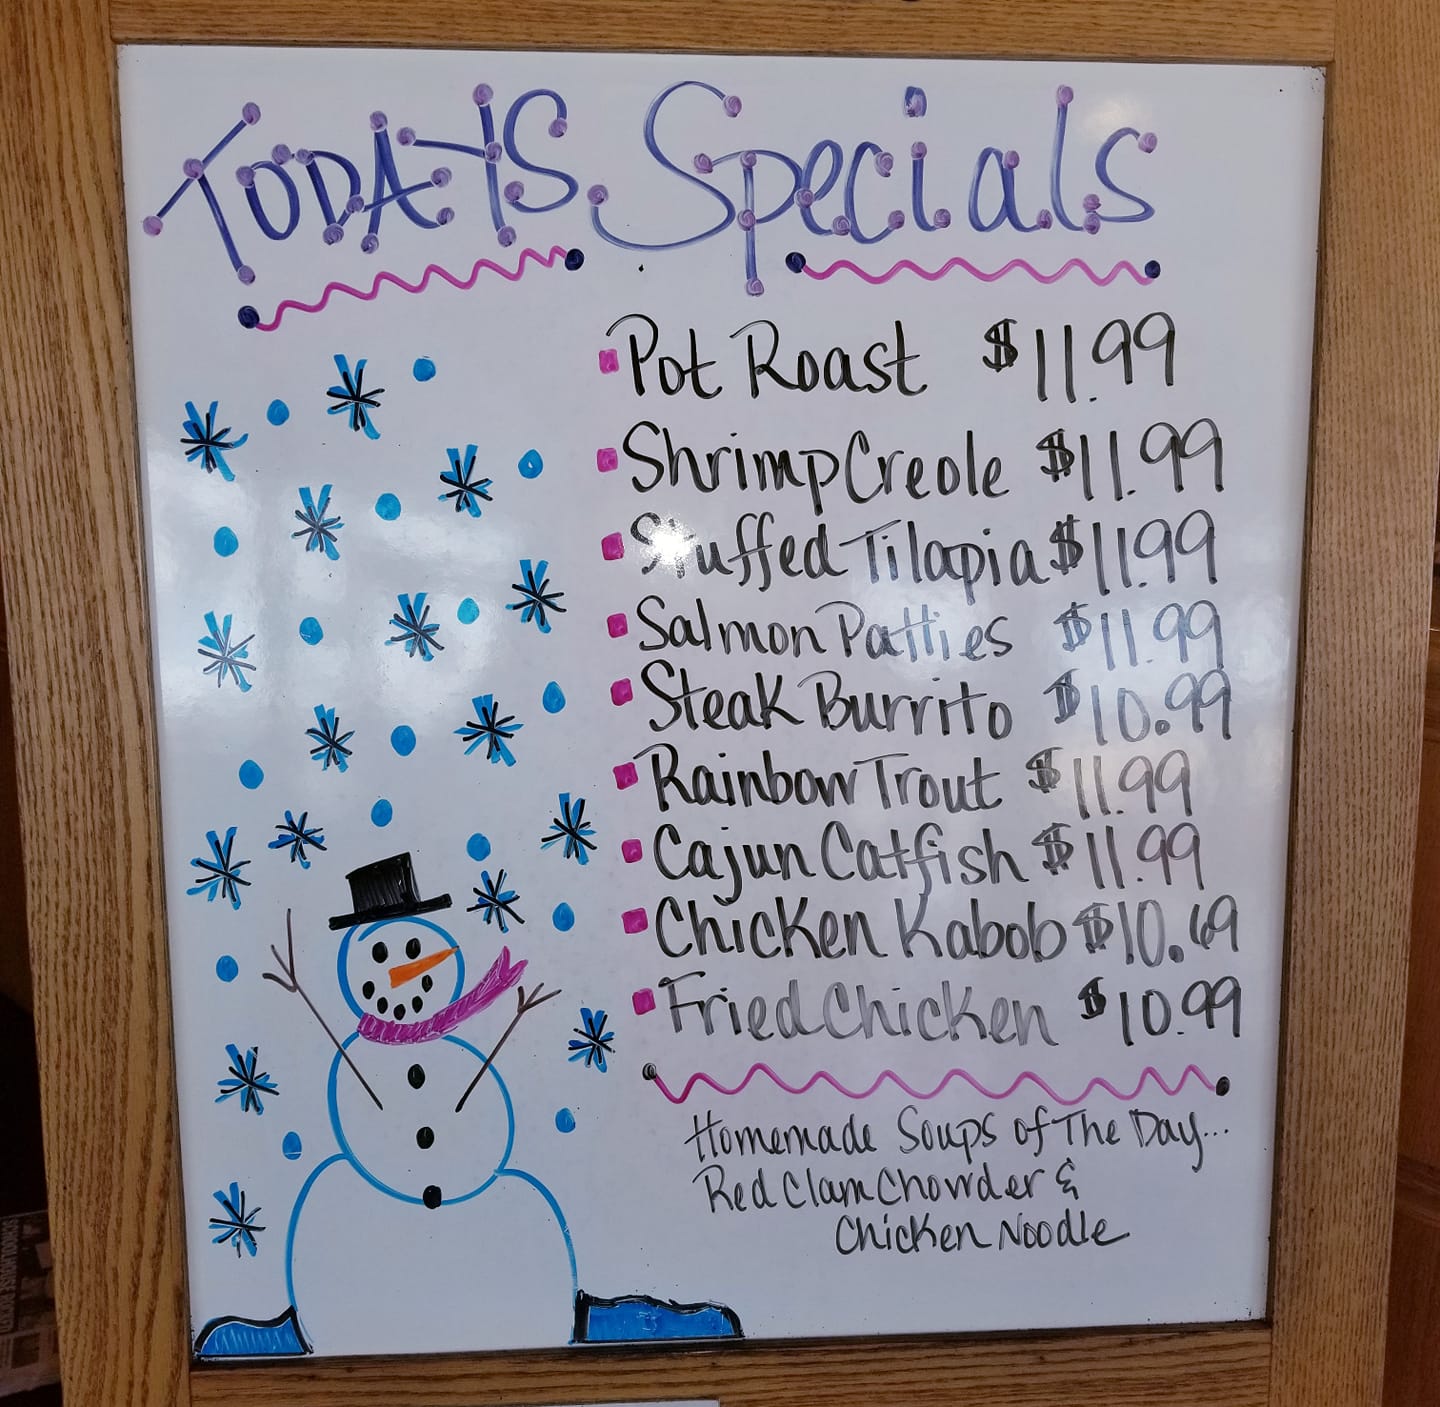 TODAYS Specials
Pot Roast $11.99
Shrimp Creole $11.99
Stuffed Tilapia $11.99
Salmon Patties $11.99
Steak Burrito $10.99
Rainbow Trout $11.99
Cajun Catfish $11.99
Chicken Kabob $10.69
Fried Chicken $10.99
Homemade Soups of The Day...
Red Clam Chowder &
Chicken Noodle